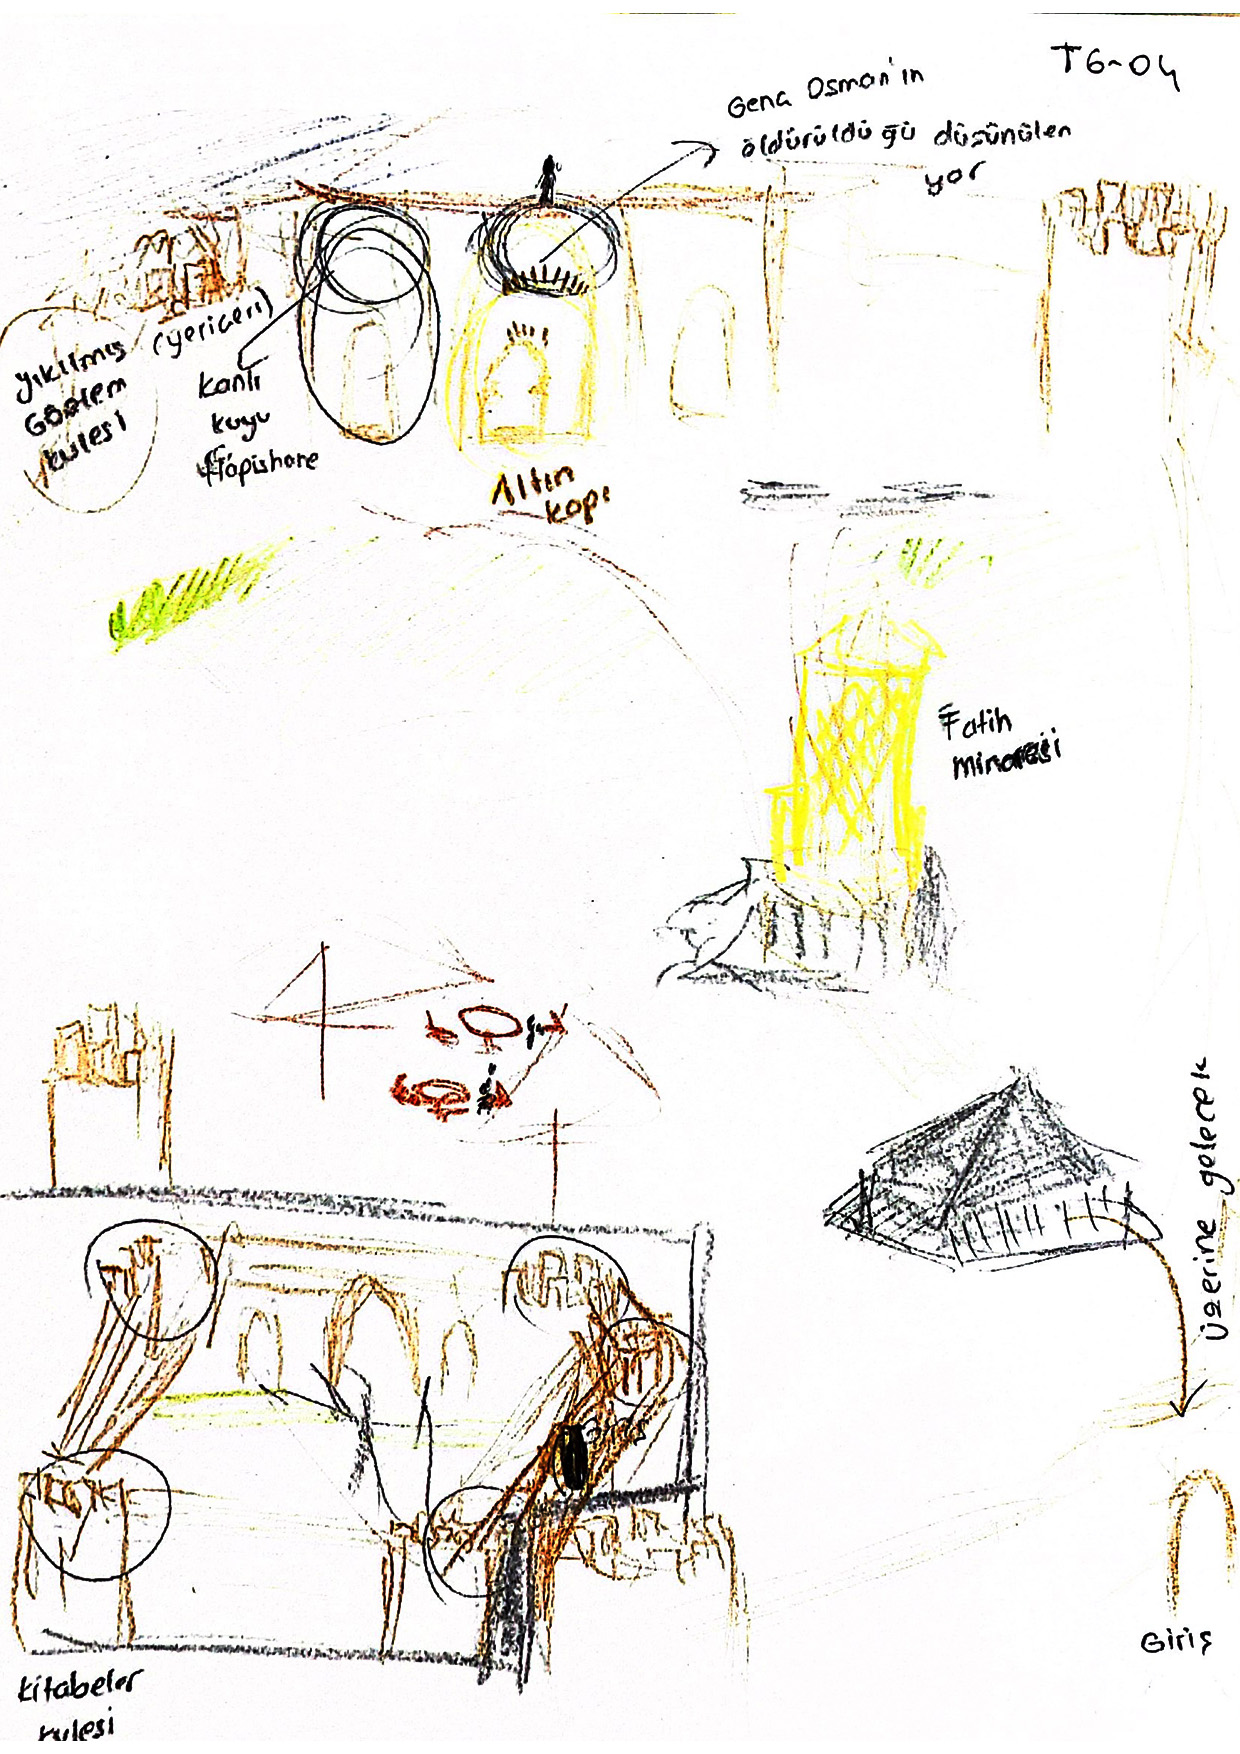 T6-04
Genç Osman'ın
öldürüldüğü düşünülen
yer
Yıkılmış
Gözlem
kulesi
(yeniçeri)
Kanlı
kuyu
Hapishane
Altın
kapı
Fatih
minaresi
üzerine gelecek
Giriş
kitabeler
kulesi